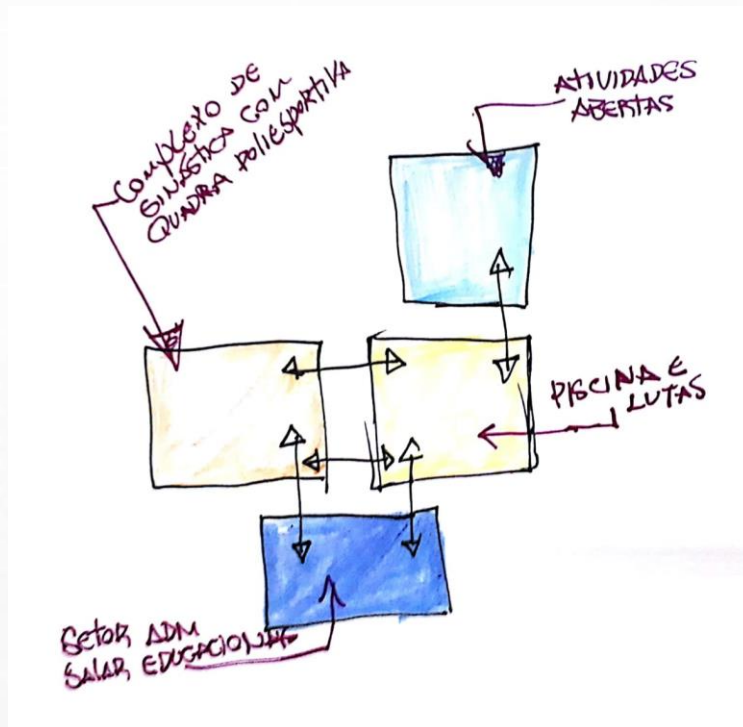 COMPLEXO DE
GINÁSTICA COM
QUADRA POLIESPORTIVA
ATIVIDADES
ABERTAS
PISCINA E
LUTAS
SETOR ADM
SALAR EDUCACIONAL